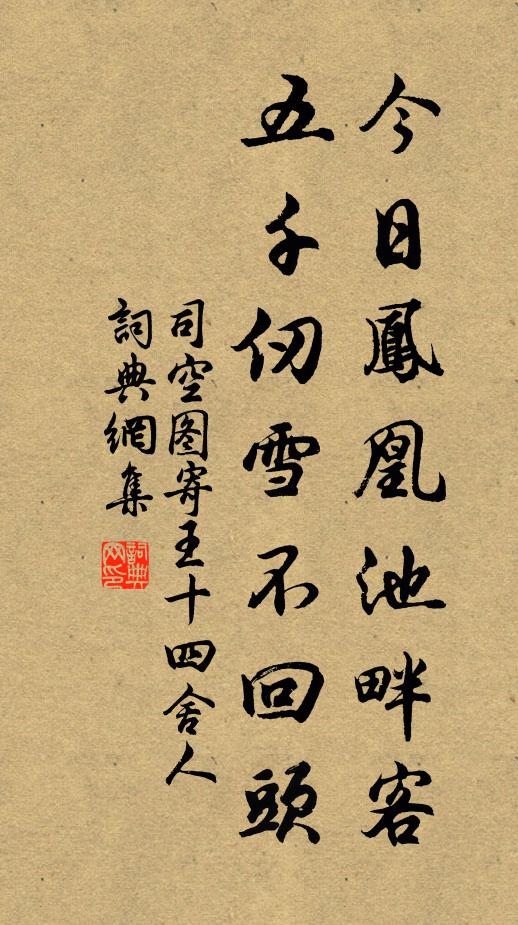 今日鳳凰池畔客
五千仞雪不回頭
司空图寄王十四舍人
詞典網集
詞典網印